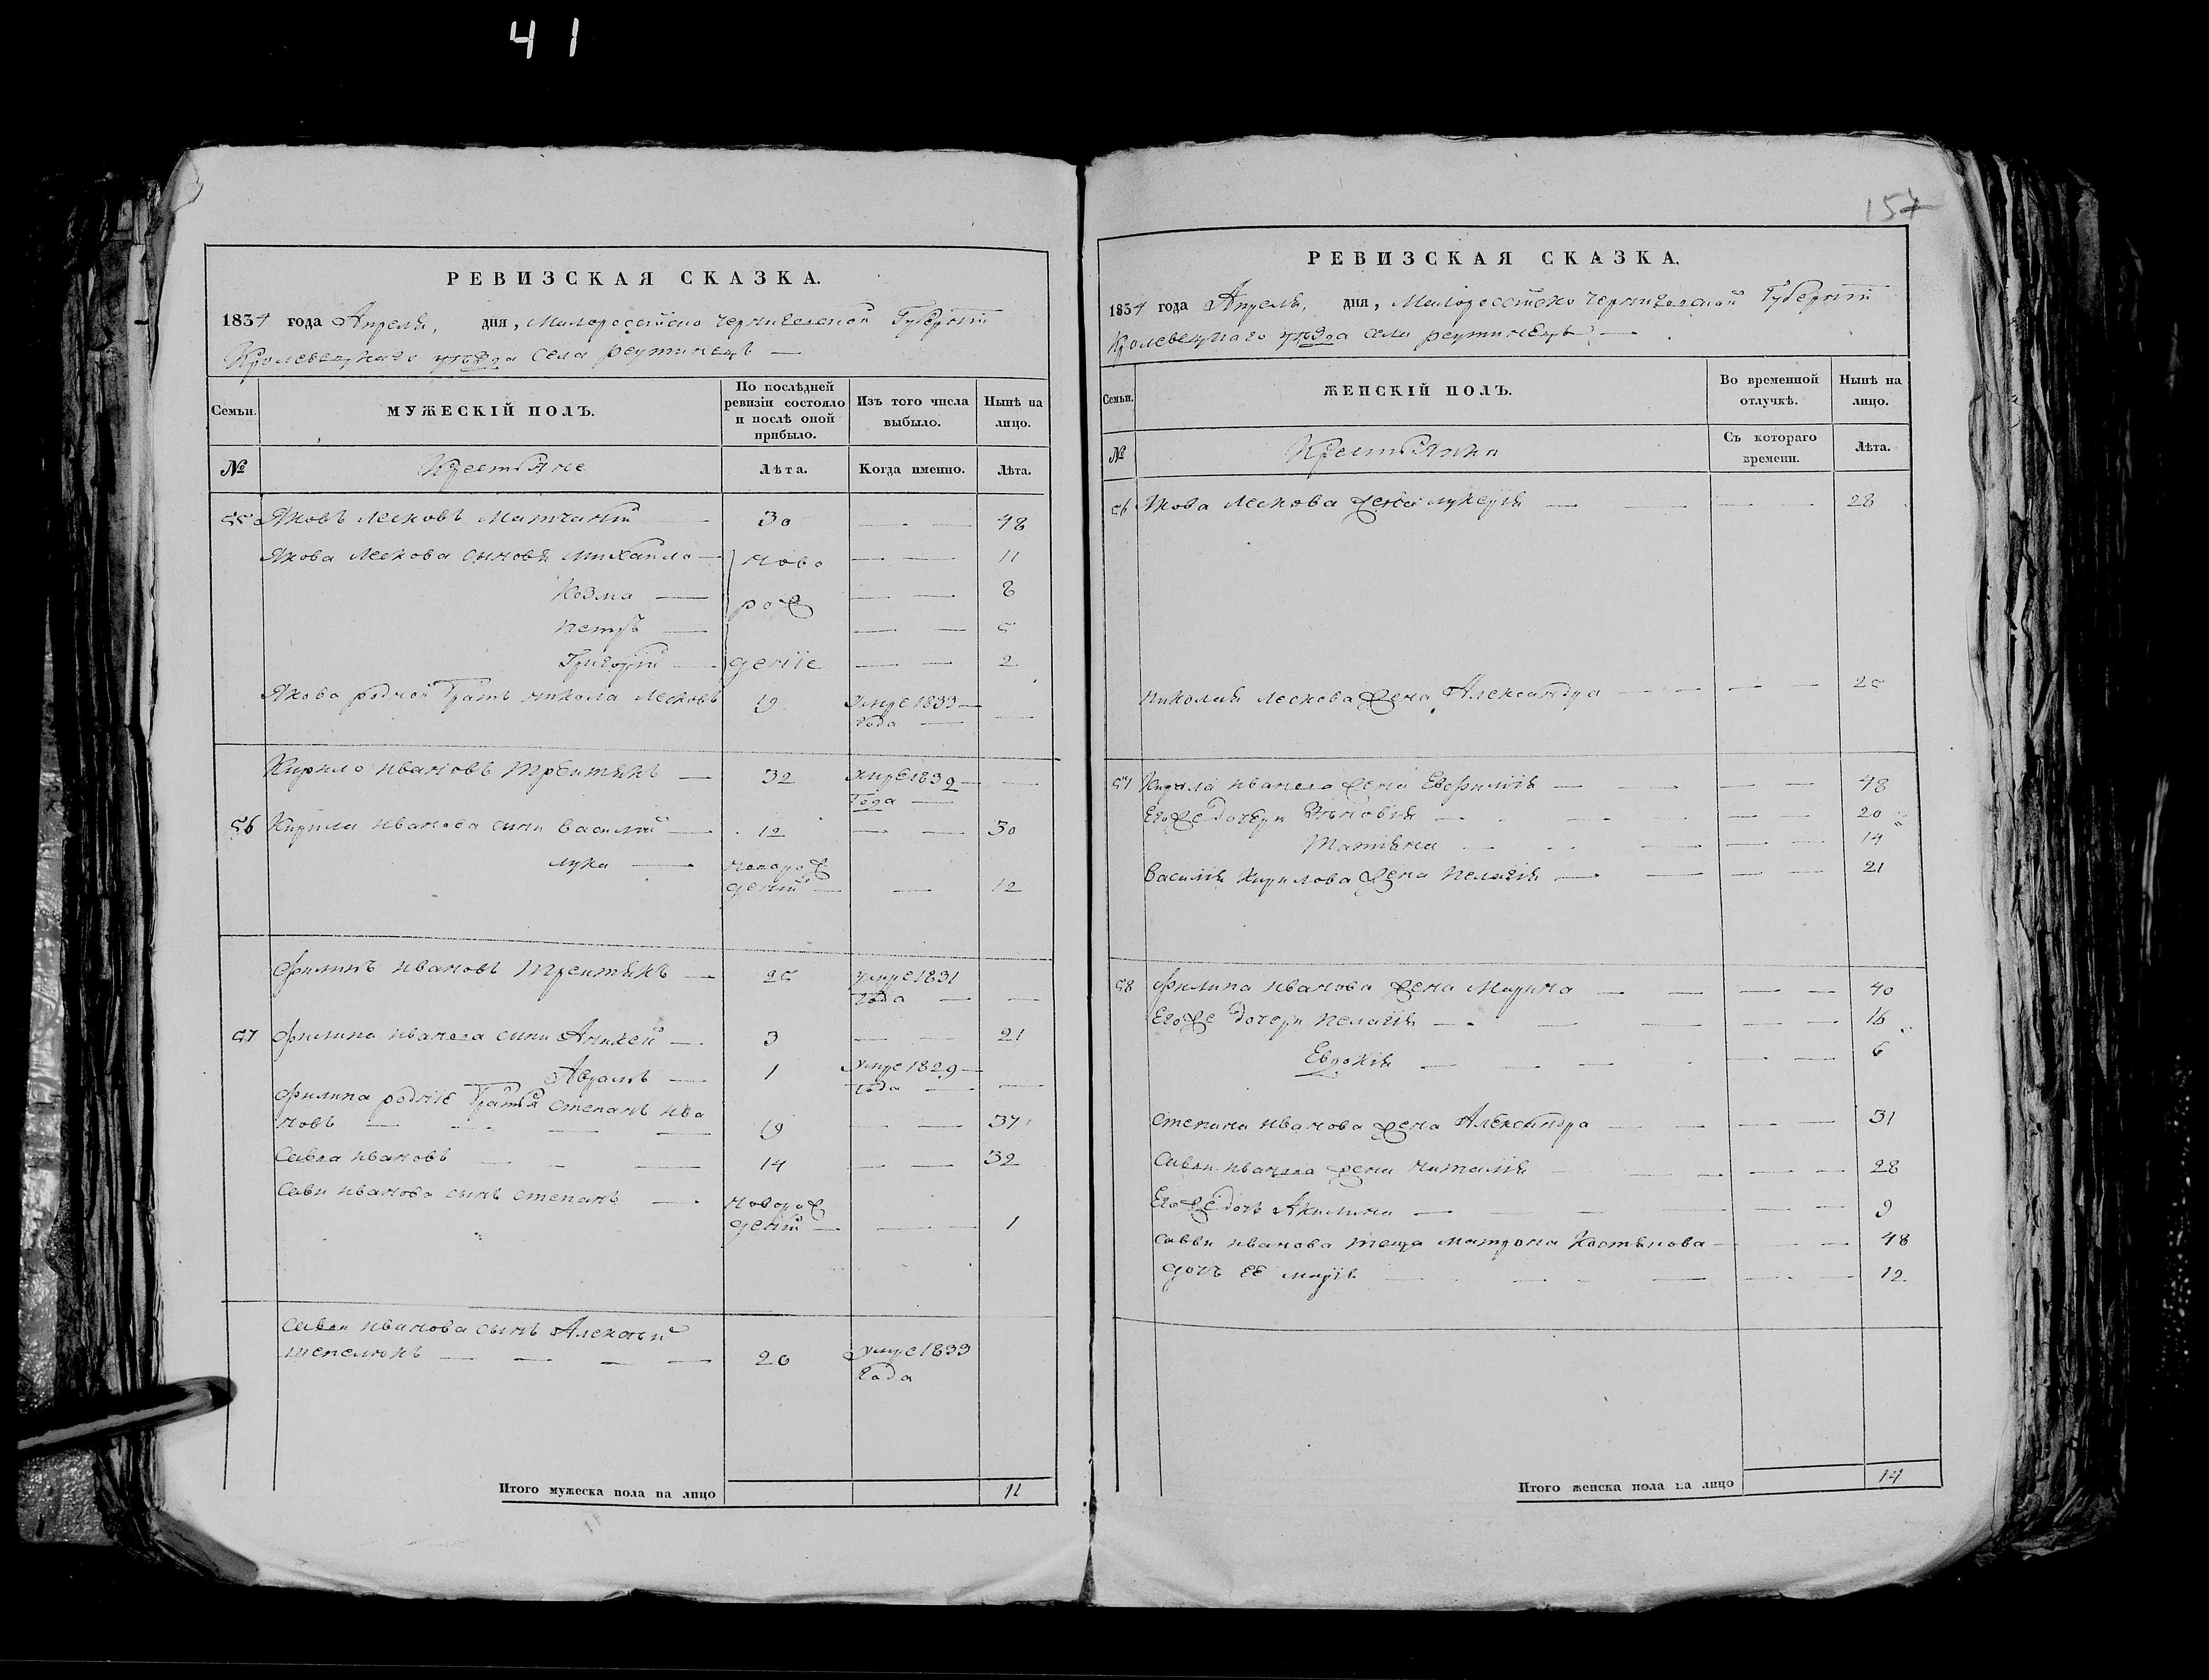 41
157
РЕВИЗСКАЯ СКАЗКА.
1834 года Апреля, дня, Малороссийско Черниговской Губернии
Кролевецкаго уезда села реутинецъ
Семьи. МУЖЕСКІЙ ПОЛЪ. По послѣдней ревизіи состояло и послѣ оной прибыло. Изъ того числа выбыло. Нынѣ на лицо.
№ Крестьяне Лѣта. Когда именно. Лѣта.
55 Яковъ Лесковъ 30 48
Якова Лескова сыновя Михаило ново 11
Козма рож 8
Петръ 5
Григорій деніе 2
Якова родной братъ никола Лесковъ 19 умре 1833
года
Кирило Ивановъ 32 умре 1832
года
56 Кирили Иванова сини василий 12 30
лука новорож
деній 12
Филипъ Ивановъ 25 умре 1831
года
57 Филипа Иванова сини Аникей 3 21
Аврамъ 1 умре 1829
года
Филипа родніе братья степанъ ива
новъ 19 37
Савва Ивановъ 14 32
Сави Иванова сынъ степанъ новорож
деній 1
Савви Иванова сынъ Алексій
шепелюкъ 20 умре 1833
года
Итого мужеска пола на лицо 11
РЕВИЗСКАЯ СКАЗКА.
1834 года Апреля, дня, Малороссийско Черниговской Губернии
Кролевецкаго уезда села реутинецъ
Семьи. ЖЕНСКІЙ ПОЛЪ. Во временной отлучкѣ. Нынѣ на лицо.
№ Крестьянки Съ котораго времени. Лѣта.
56 Якова Лескова жена лукерія 28
Николая Лескова жена Александра 25
57 Кирила Иванова жена Евфимія 48
Его же дочери Зѣновія 20
Татіяна 14
Василія Кирилова жена Пелагія 21
58 Филипа Иванова жена Марина 40
Его же дочери Пелагія 16
Евдокія 6
Степана Иванова жена Александра 31
Савви Иванова жена Наталія 28
Его же дочъ Акилина 9
Савви Иванова теща Матрона 48
дочъ ее марія 12
Итого женска пола на лицо 14